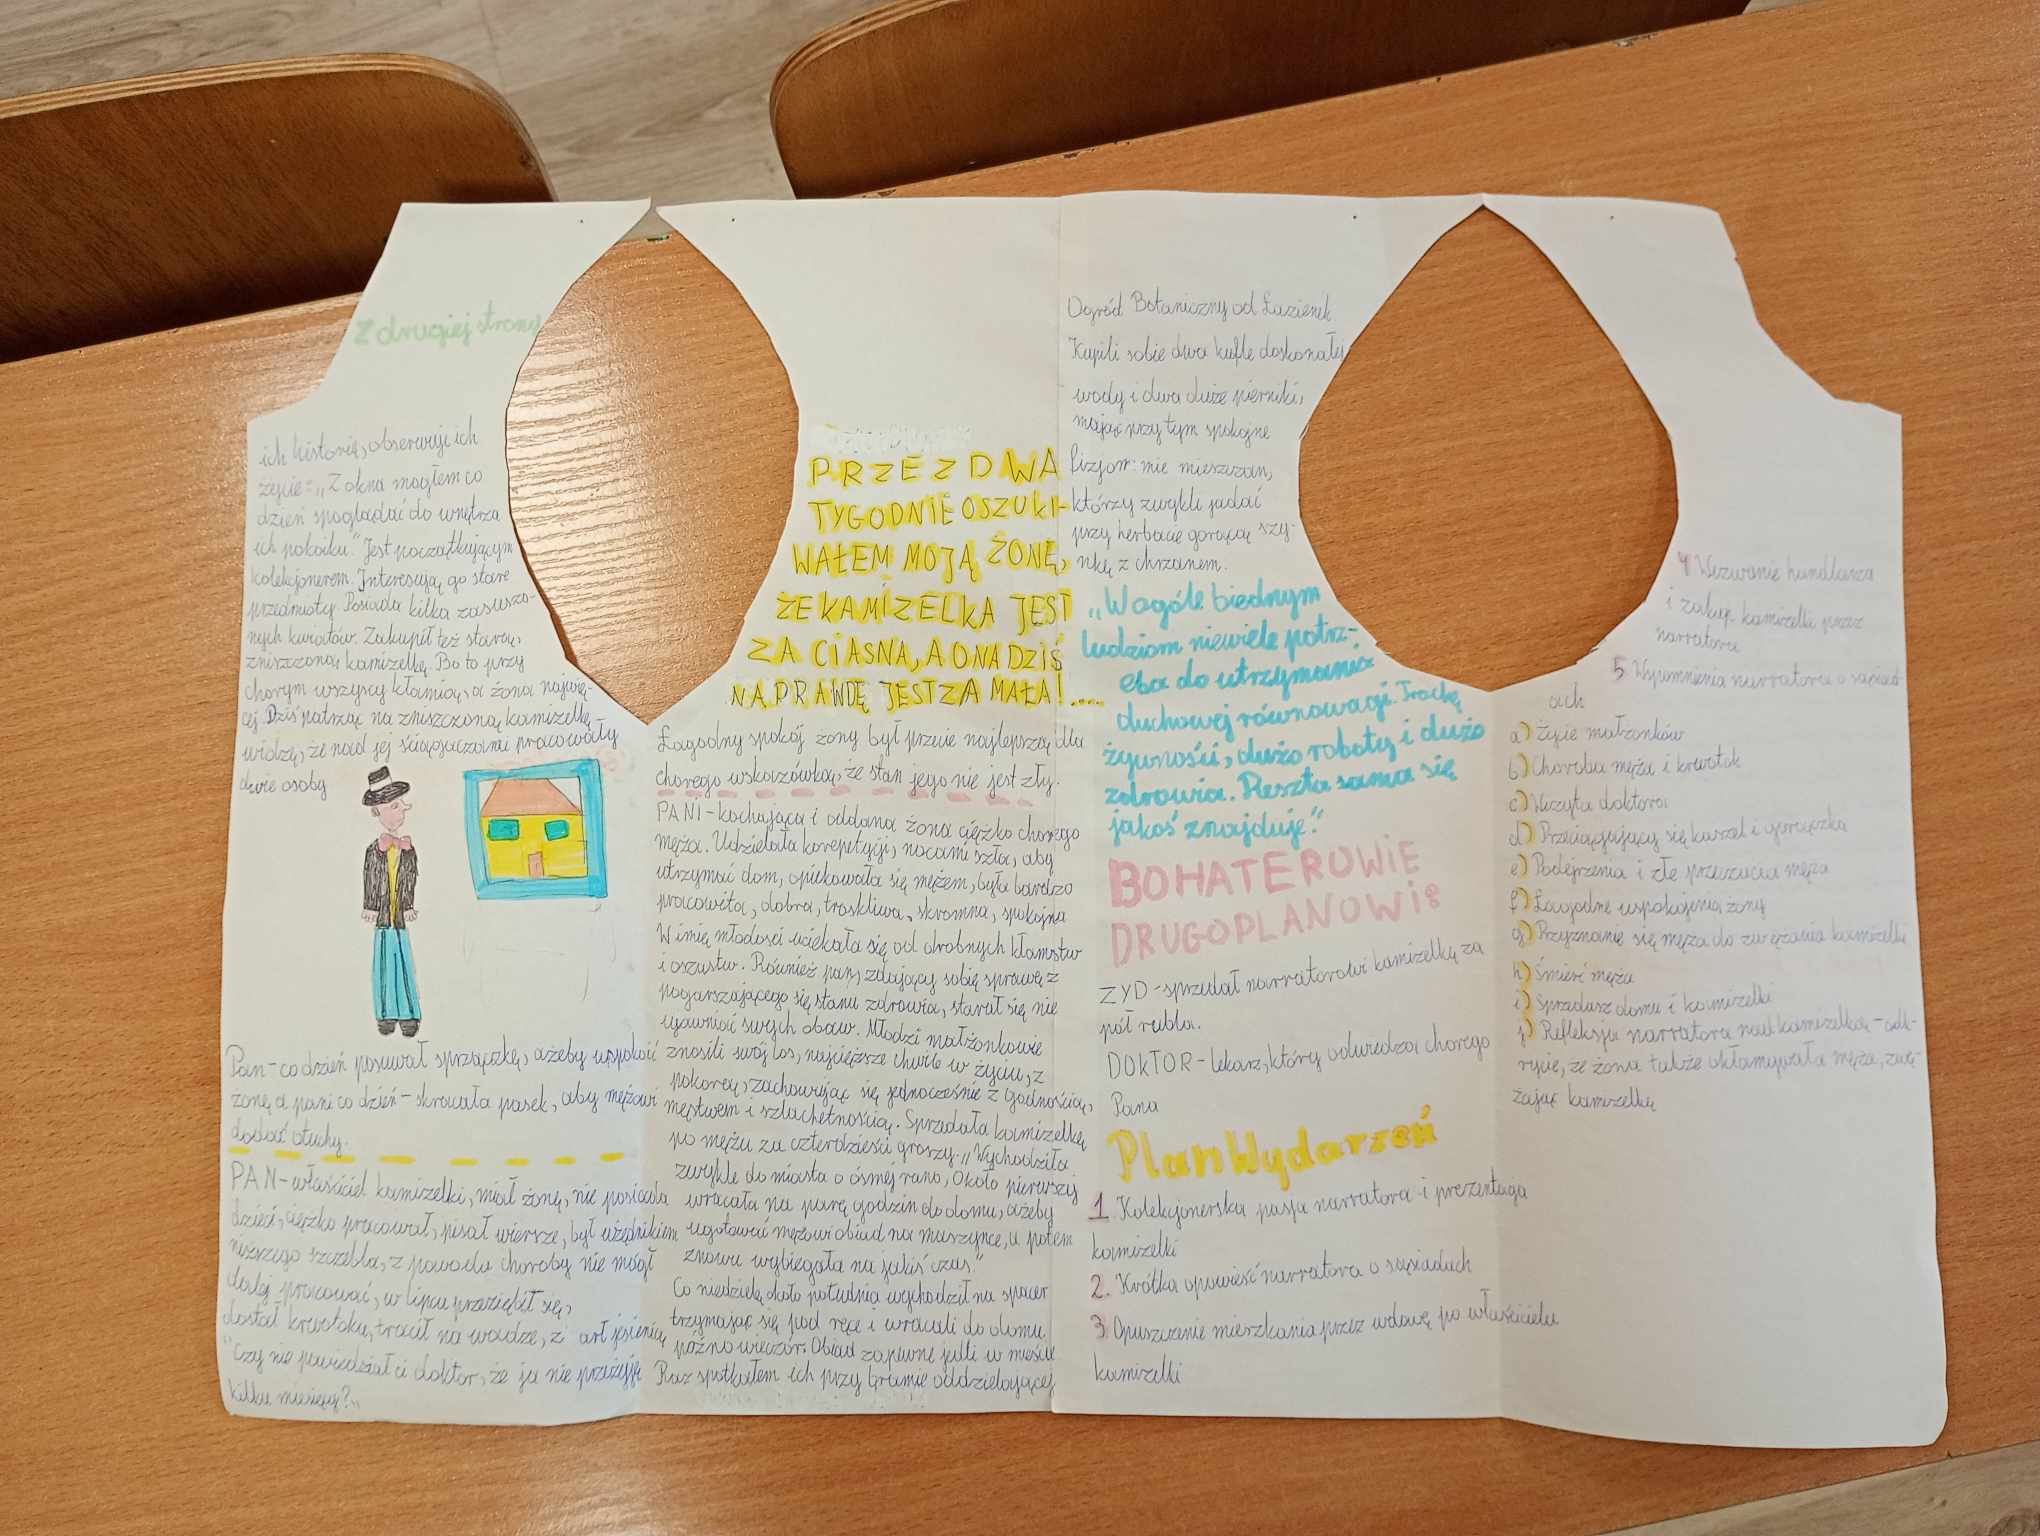 Z drugiej strony
ich historię, obserwuje ich
życie: „Z okna mogłem co
dzień spoglądać do wnętrza
ich pokoiku." Jest początkującym
kolekcjonerem. Interesują go stare
przedmioty. Posiada kilka zasuszo-
nych kwiatów. Zakupił też starą,
zniszczoną kamizelkę. Bo to przy
chorym wszyscy kłamią, a żona najwię-
cej. Dziś patrząc na zniszczoną kamizelkę,
widzę, że nad jej ściągaczami pracowały
dwie osoby
Pan - co dzień posuwał sprzączkę, ażeby uspokoić
żonę, a pani co dzień - skracała pasek, aby mężowi
dodać otuchy.
PAN - właściciel kamizelki, miał żonę, nie posiadał
dzieci, ciężko pracował, pisał wiersze, był urzędnikiem
niższego szczebla, z powodu choroby nie mógł
dalej pracować, w lipcu przeziębił się,
dostał krwotoku, tracił na wadze, zmarł jesienią
"Czy nie powiedział ci doktor, że ja nie przeżyję
kilku miesięcy?"
PRZEZ DWA
TYGODNIE OSZUKI-
WAŁEM MOJĄ ŻONĘ,
ŻE KAMIZELKA JEST
ZA CIASNA, A ONA DZIŚ
NAPRAWDĘ JEST ZA MAŁA!....
Łagodny spokój żony był przecie najlepszą dla
chorego wskazówką, że stan jego nie jest zły.
PANI - kochająca i oddana żona ciężko chorego
męża. Udzielała korepetycji, nocami szła, aby
utrzymać dom, opiekowała się mężem, była bardzo
pracowita, dobra, troskliwa, skromna, spokojna
W imię młodości uciekała się od drobnych kłamstw
i oszustw. Również pan, zdający sobie sprawę z
pogarszającego się stanu zdrowia, starał się nie
ujawniać swych obaw. Młodzi małżonkowie
znosili swój los, najcięższe chwile w życiu, z
pokorą, zachowując się jednocześnie z godnością,
męstwem i szlachetnością. Sprzedała kamizelkę
po mężu za czterdzieści groszy. „Wychodziła
zwykle do miasta o ósmej rano, około pierwszej
wracała na parę godzin do domu, ażeby
ugotować mężowi obiad na maszynce, a potem
znowu wybiegała na jakiś czas."
Co niedzielę około południa wychodzili na spacer
trzymając się pod rękę i wracali do domu
późno wieczór. Obiad zapewne jedli w mieście
Raz spotkałem ich przy bramie oddzielającej
Ogród Botaniczny od Łazienek
Kupili sobie dwa kufle doskonałej
wody i dwa duże pierniki,
mając przy tym spokojne
fizjonomie mieszczan,
którzy zwykli jadać
przy herbacie gorącą szy-
nkę z chrzanem.
„W ogóle biednym
ludziom niewiele potrz-
eba do utrzymania
duchowej równowagi. Trochę
żywności, dużo roboty i dużo
zdrowia. Reszta sama się
jakoś znajduje."
BOHATEROWIE
DRUGOPLANOWI:
ŻYD - sprzedał narratorowi kamizelkę za
pół rubla.
DOKTOR - lekarz, który odwiedza chorego
Pana
Plan Wydarzeń
1. Kolekcjonerska pasja narratora i prezentacja
kamizelki
2. Krótka opowieść narratora o sąsiadach
3. Opuszczenie mieszkania przez wdowę po właścicielu
kamizelki
4 Wezwanie handlarza
i zakup kamizelki przez
narratora
5. Wspomnienia narratora o sąsiad-
ach
a) Życie małżonków
b) Choroba męża i krwotok
c) Wizyta doktora
d) Przeciągający się kaszel i gorączka
e) Podejrzenia i złe przeczucia męża
f) Łagodne uspokojenia żony
g) Przyznanie się męża do zwężania kamizelki
h) Śmierć męża
i) Sprzedaż domu i kamizelki
j) Refleksja narratora nad kamizelką - odk-
rycie, że żona także okłamywała męża, zwę-
żając kamizelkę